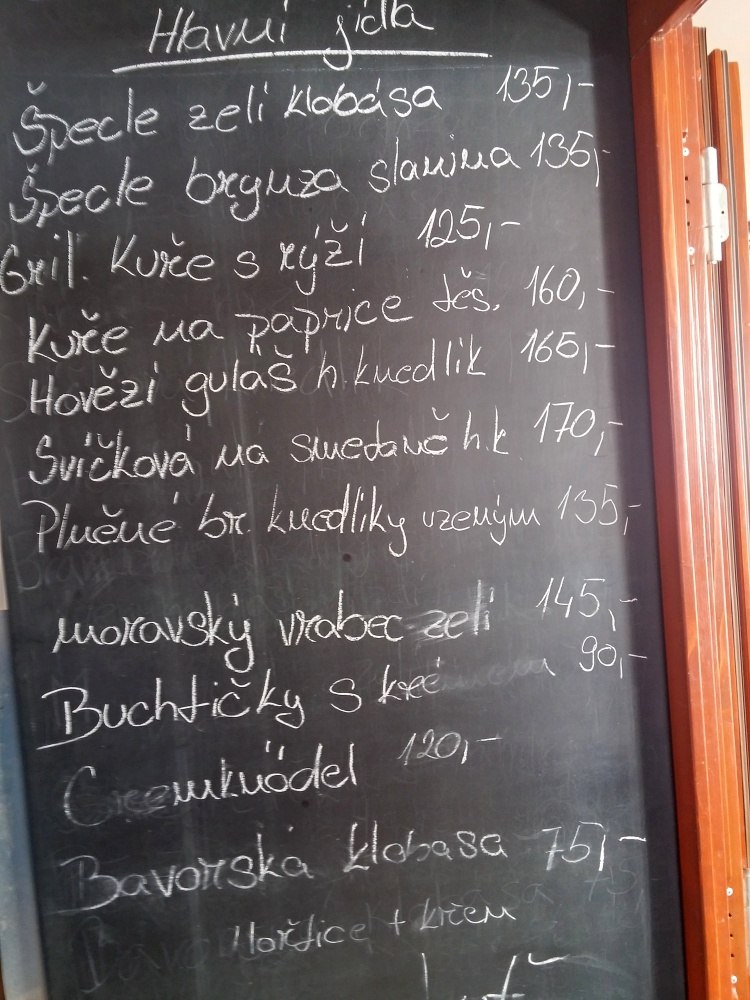 Hlavní jídla
Špecle zelí klobása 135,-
Špecle brynza slanina 135,-
Gril. Kuře s rýží 125,-
Kuře na paprice těs. 160,-
Hovězí guláš h. knedlík 165,-
Svíčková na smetaně h.k. 170,-
Plněné br. knedlíky uzeným 135,-
moravský vrabec zelí 145,-
Buchtičky s 90,-
knödel 120,-
Bavorská klobása 75,-
Hořtice + křen